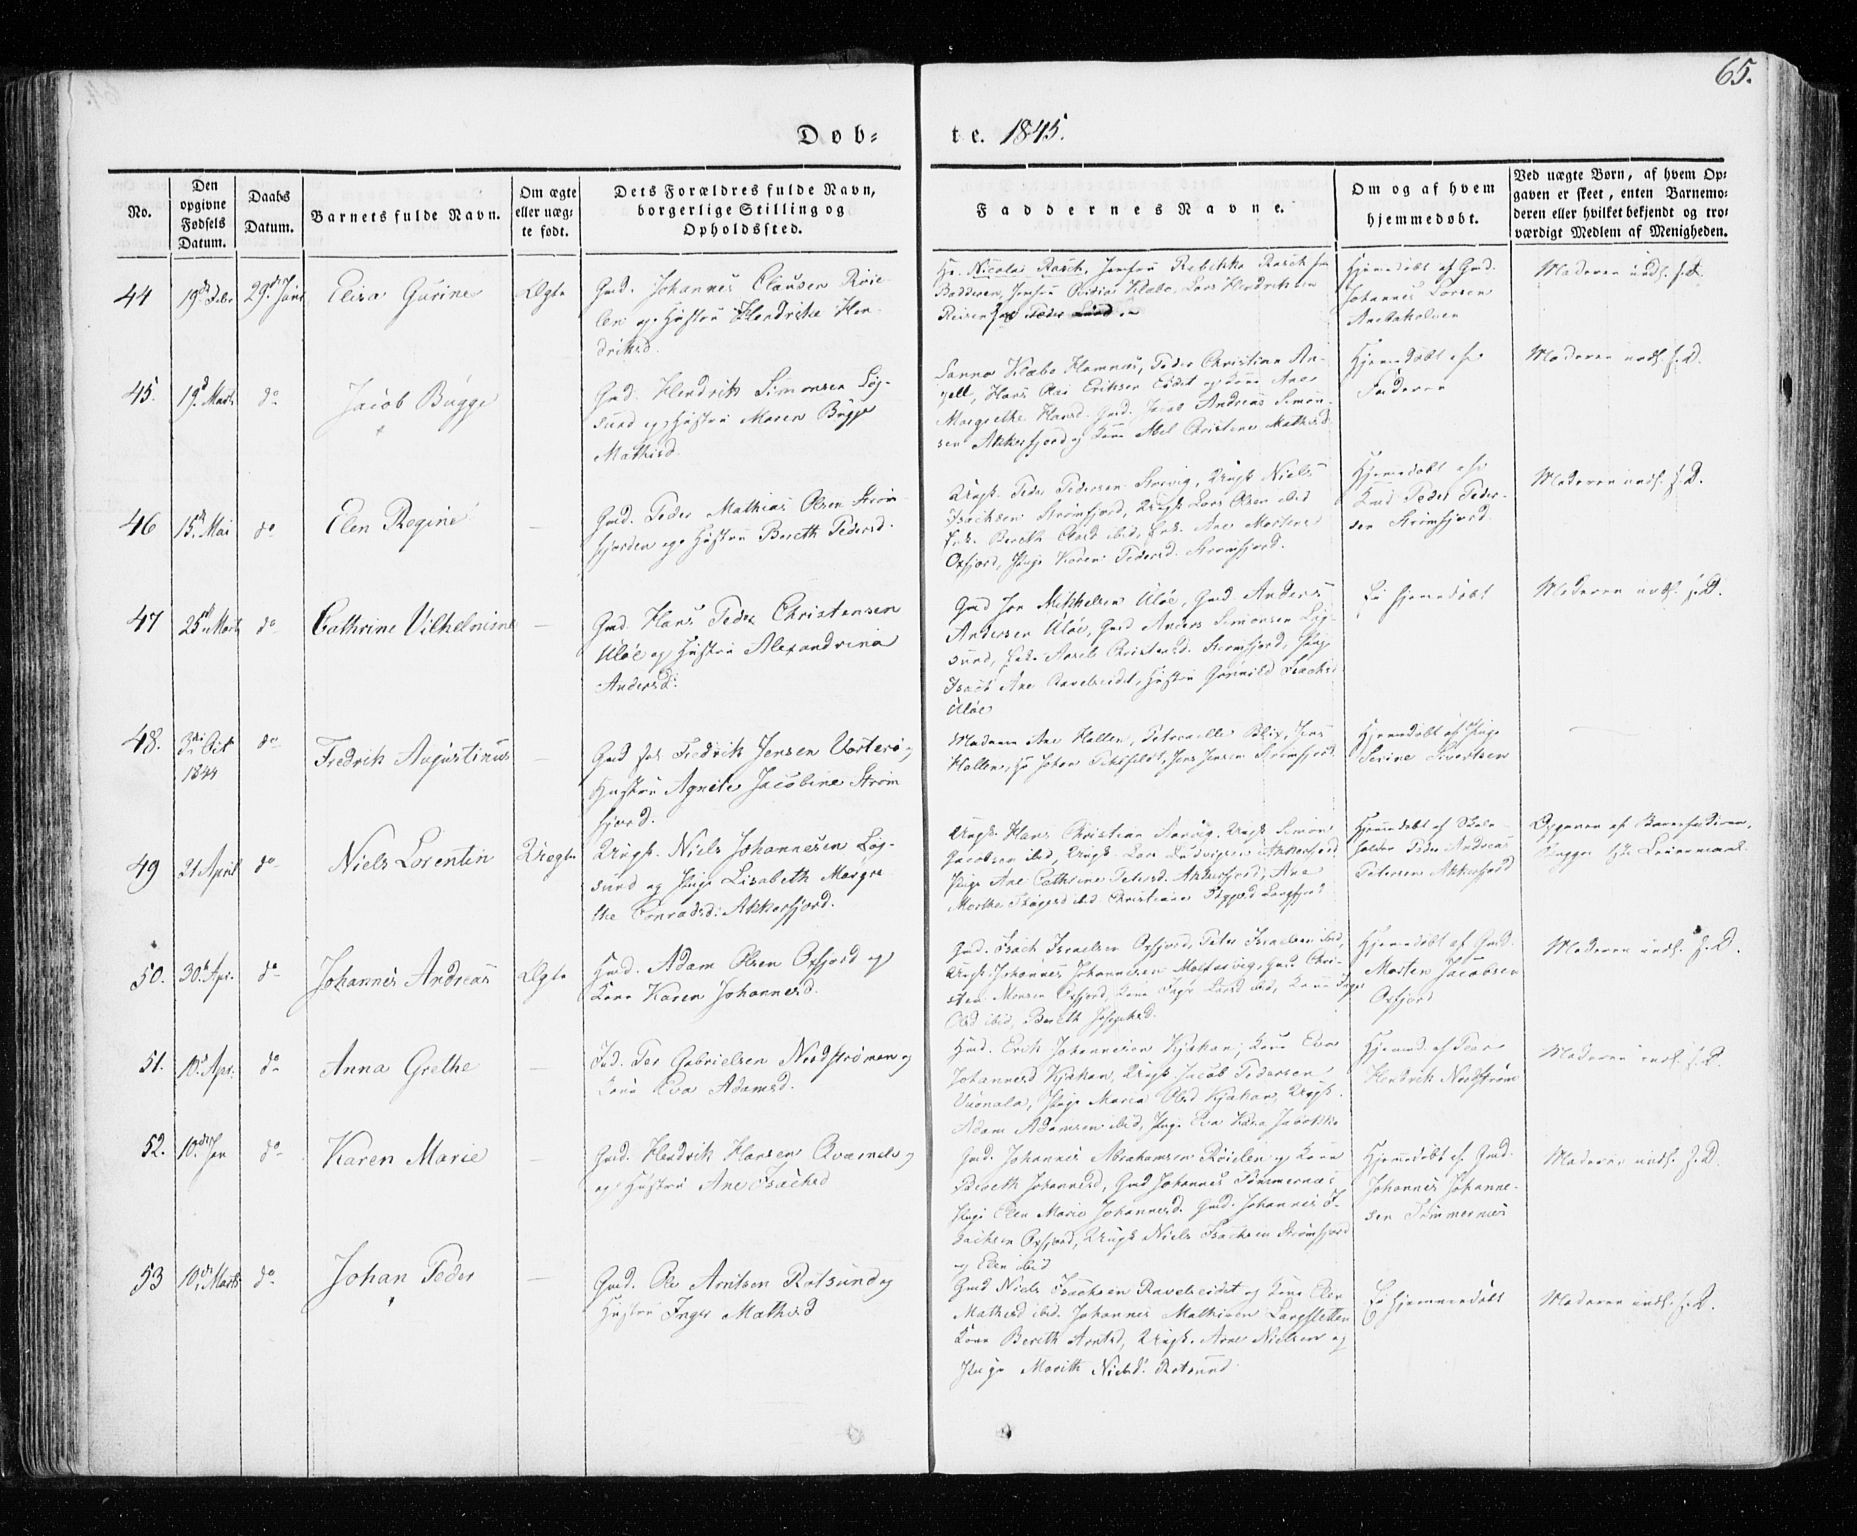 65.
Døb=
te. 1845.
No.
Den opgivne Fødsels Datum.
Daabs Datum.
Barnets fulde Navn.
Om ægte eller uæg= te født.
Dets Forældres fulde Navn, borgerlige Stilling og Opholdssted.
Faddernes Navne.
Om og af hvem hjemmedøbt.
Ved uægte Børn, af hvem Op= gaven er skeet, enten Barnemo= deren eller hvilket bekjendt og tro= værdigt Medlem af Menigheden.
44
19de Febr
29de Juni
Elisa Gurine
Ægte
Gmd. Johannes Clausen
og Hustru Hendrikke Hen-
driksd.
Hr. Nicolai Rasch, Jomfru Rebekka Rasch
Hjemmedøbt af Gmd.
Johannes Larsen
Moderen indl. f. D.
45.
19d Marts
do
Jacob Bugge
Gmd. Hendrik Simonsen Løg-
sund og Hustru Maren Bugge
Mathisd.
Sanna Klæbo Hamnes, Peder Christian An-
gell, Hans Eriksen
Margrethe Hansd. Gmd. Jacob Andreas Simon-
sen Akkerfjord og Kone Abel Christine Mathisd
Hjemmedøbt af
Faderen
Moderen indl. f. D.
46
15de Mai
do
Elen Regine
—
Gmd. Peder Mathias Olsen Strøm-
fjorden og Hustru Bereth Pedersd.
Ungk. Peder Pedersen Storvig, Ungk Niels
Isachsen Strømfjord, Ungk Lars Olsen ibid
Bereth Olsd ibid, Ane Martine
Oxfjord, Pige Karen Pedersd. Strømfjord.
Hjemmedøbt af
Gmd Peder Peder-
sen Strømfjord.
Moderen indl. f. D.
47
25d Marts
do
Cathrine Vilhelmine
—
Gmd. Hans Peder Christensen
Uløe og Hustru Alexandrina
Andersd.
Gmd Jon Mikkelsen Uløe, Gmd. Anders
Andersen Uløe, Gmd Anders Simonsen Løg-
sund, Christensd. Strømfjord, Pige
Ane Ravelseidet, Hustru Gunnild Isachsd
Uløe
Ei hjemmedøbt
Moderen indl. f. D.
48.
3die Oct
1844
do
Fredrik Augustinus
—
Gmd Fredrik Jensen Vorterø og
Hustru Agnete Jacobine Strøm
fjord.
Madame Ane Hallen, Petronelle Blix, Jens
Hallen, Johan Jens Jensen Strømfjord.
Hjemmedøbt af Pige
Serine Sivertsen
49
21 April
do
Niels Lorentin
Uægte
Ungk. Niels Johannesen Løg-
sund og Pige Lisabeth Margre
the Conradsd. Akkerfjord.
Ungk. Hans Christian Storvig. Ungk Simon
Jacobsen ibid, Ungk. Lars Ludvigsen Akkerfjord
Pige Ane Cathrine Petersd. Akkerfjord, Ane
Marthe ibid Christiane Langfjord
Hjemmedøbt af Skole-
holder Peder Andreas
Petersen Akkerfjord
Opgaven af Barnefaderen,
Begges 1ste Leiermaal
50.
30d Apr.
do
Johannes Andreas
Ægte
Gmd. Adam Olsen Oxfjord og
Kone Karen Johannesd.
Gmd. Isach Israelsen Oxfjord, Peter Israelsen ibid,
Ungk. Johannes Johannesen Gmd Chri-
sten Monsen Oxfjord, Kone Inger Larsd ibid, Kone Inger
Olsd ibid, Bereth Josephsd.
Hjemmedøbt af Gmd.
Morten Jacobsen
Oxfjord
Moderen indl. f. D.
51.
10d Apr.
do
Anna Grethe
—
Ind. Per Gabrielsen Nordstrømen og
Kone Eva Adamsd.
Gmd. Erik Johannesen Kjækan, Kone Eva
Johannesd Kjækan, Ungk Jacob Pedersen
Pige Maria Olsd Kjækan, Ungk.
Adam Adamsen ibid, Pige Eva
Hjemmd. af
Hendrik Nordstrøm
Moderen indl. f. D.
52.
10de Jan
do
Karen Marie
—
Gmd. Hendrik Hansen
og Hustru Ane Isachsd
Gmd. Johannes Abrahamsen og Kone
Bereth Johannesd, Gmd Johannes Tømmernæs
Pige Elen Marie Johannesd. Gmd. Johannes I-
sachsen Oxfjord, Ungk Niels Isachsen Strømfjord
og Elen ibid
Hjemmedøbt af Gmd.
Johannes Johanne-
sen Tømmernæs
Moderen indl. f. D.
53
10de Marts
do
Johan Peder
—
Gmd. Ole Arntsen Rotsund og
Hustru Inger Mathisd
Gmd Niels Isachsen Ravelseidet og Kone Elen
Mathisd ibid. Johannes Mathisen Langsletten
Kone Bereth Arntsd, Ungk. Arne Nielsen og
Pige Marith Nielsd. Rotsund
Ei hjemmedøbt
Moderen indl. f. D.